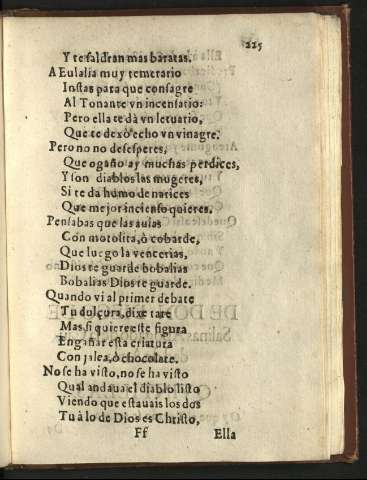 225
Y te saldran mas baratas.
A Eulalia muy temerario
Instas para que consagre
Al Tonante vn incensario:
Pero ella te dà vn letuario,
Que te dexò echo vn vinagre.
Pero no no desesperes,
Que ogaño ay muchas perdices,
Y son diablos las mugeres,
Si te da humo de narices
Que mejor incienso quieres.
Pensabas que las aulas
Con motolita, ò cobarde,
Que luego la vencerias,
Dios te guarde bobalias
Bobalias Dios te guarde.
Quando vi al primer debate
Tu dulçura, dixe tate
Mas si quiere este figura
Engañar esta criatura
Con jalea, ò chocolate.
No se ha visto, no se ha visto
Qual andaua el diablo listo
Viendo que estauais los dos
Tu à lo de Dios es Christo,
Ff Ella